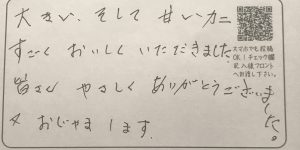 大きい、そして 甘いカニ
すごく おいしく いただきました
皆さん やさしく ありがとうございました。
又 おじゃまします。
スマホでも投稿
OK!チェック後
記入後フロント
へお渡し下さい。